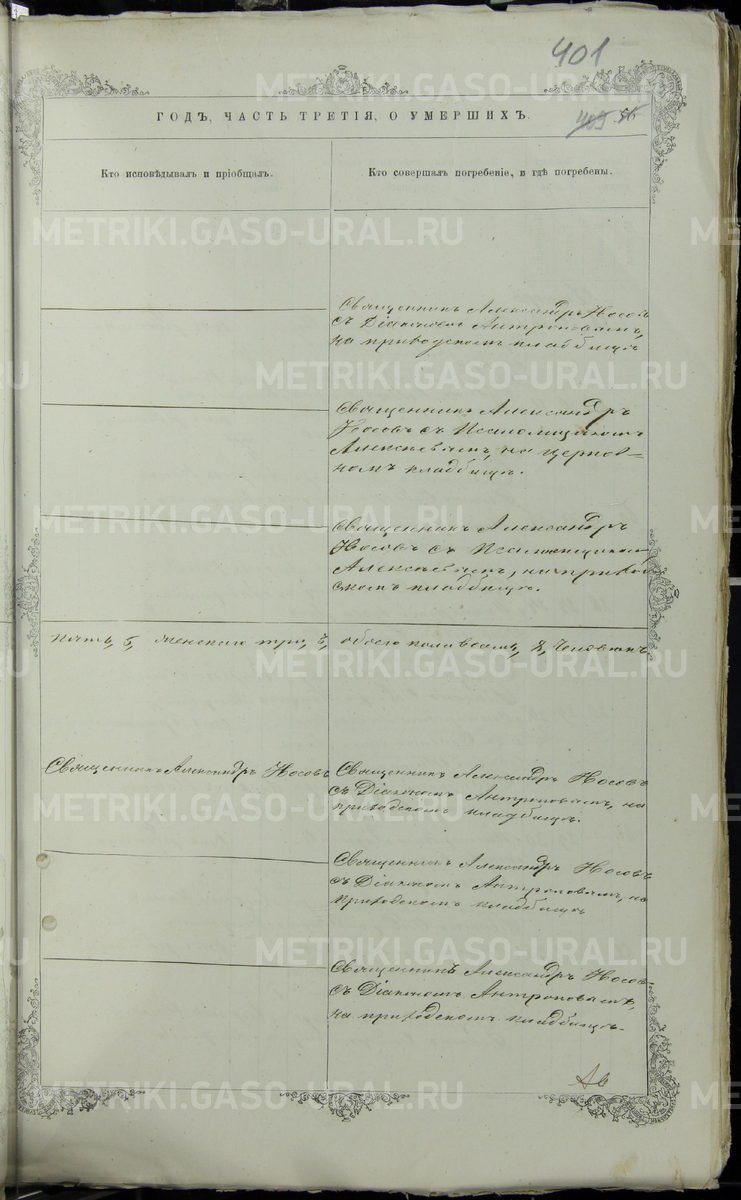 401
ГОДЪ, ЧАСТЬ ТРЕТІЯ, О УМЕРШИХЪ.
Кто исповѣдывалъ и пріобщалъ.
Кто совершалъ погребеніе, и гдѣ погребены.
Священникъ Александръ Носовъ
съ Діакономъ Антроповымъ,
на приходскомъ кладбищѣ
Священникъ Александръ
Носовъ съ Псаломщикомъ
Алексѣевымъ, на церков=
номъ кладбищѣ.
Священникъ Александръ
Носовъ съ Псаломщикомъ
Алексѣевымъ, на приход
скомъ кладбищѣ.
пять, 5, женскаго три, 3, обоего пола восемь, 8, человѣкъ.
Священникъ Александръ Носовъ
Священникъ Александръ Носовъ
съ Діакономъ Антроповымъ, на
приходскомъ кладбищѣ.
Священникъ Александръ Носовъ
съ Діакономъ Антроповымъ, на
приходскомъ кладбищѣ
Священникъ Александръ Носовъ
съ Діакономъ Антроповымъ,
на приходскомъ кладбищѣ.
METRIKI.GASO-URAL.RU